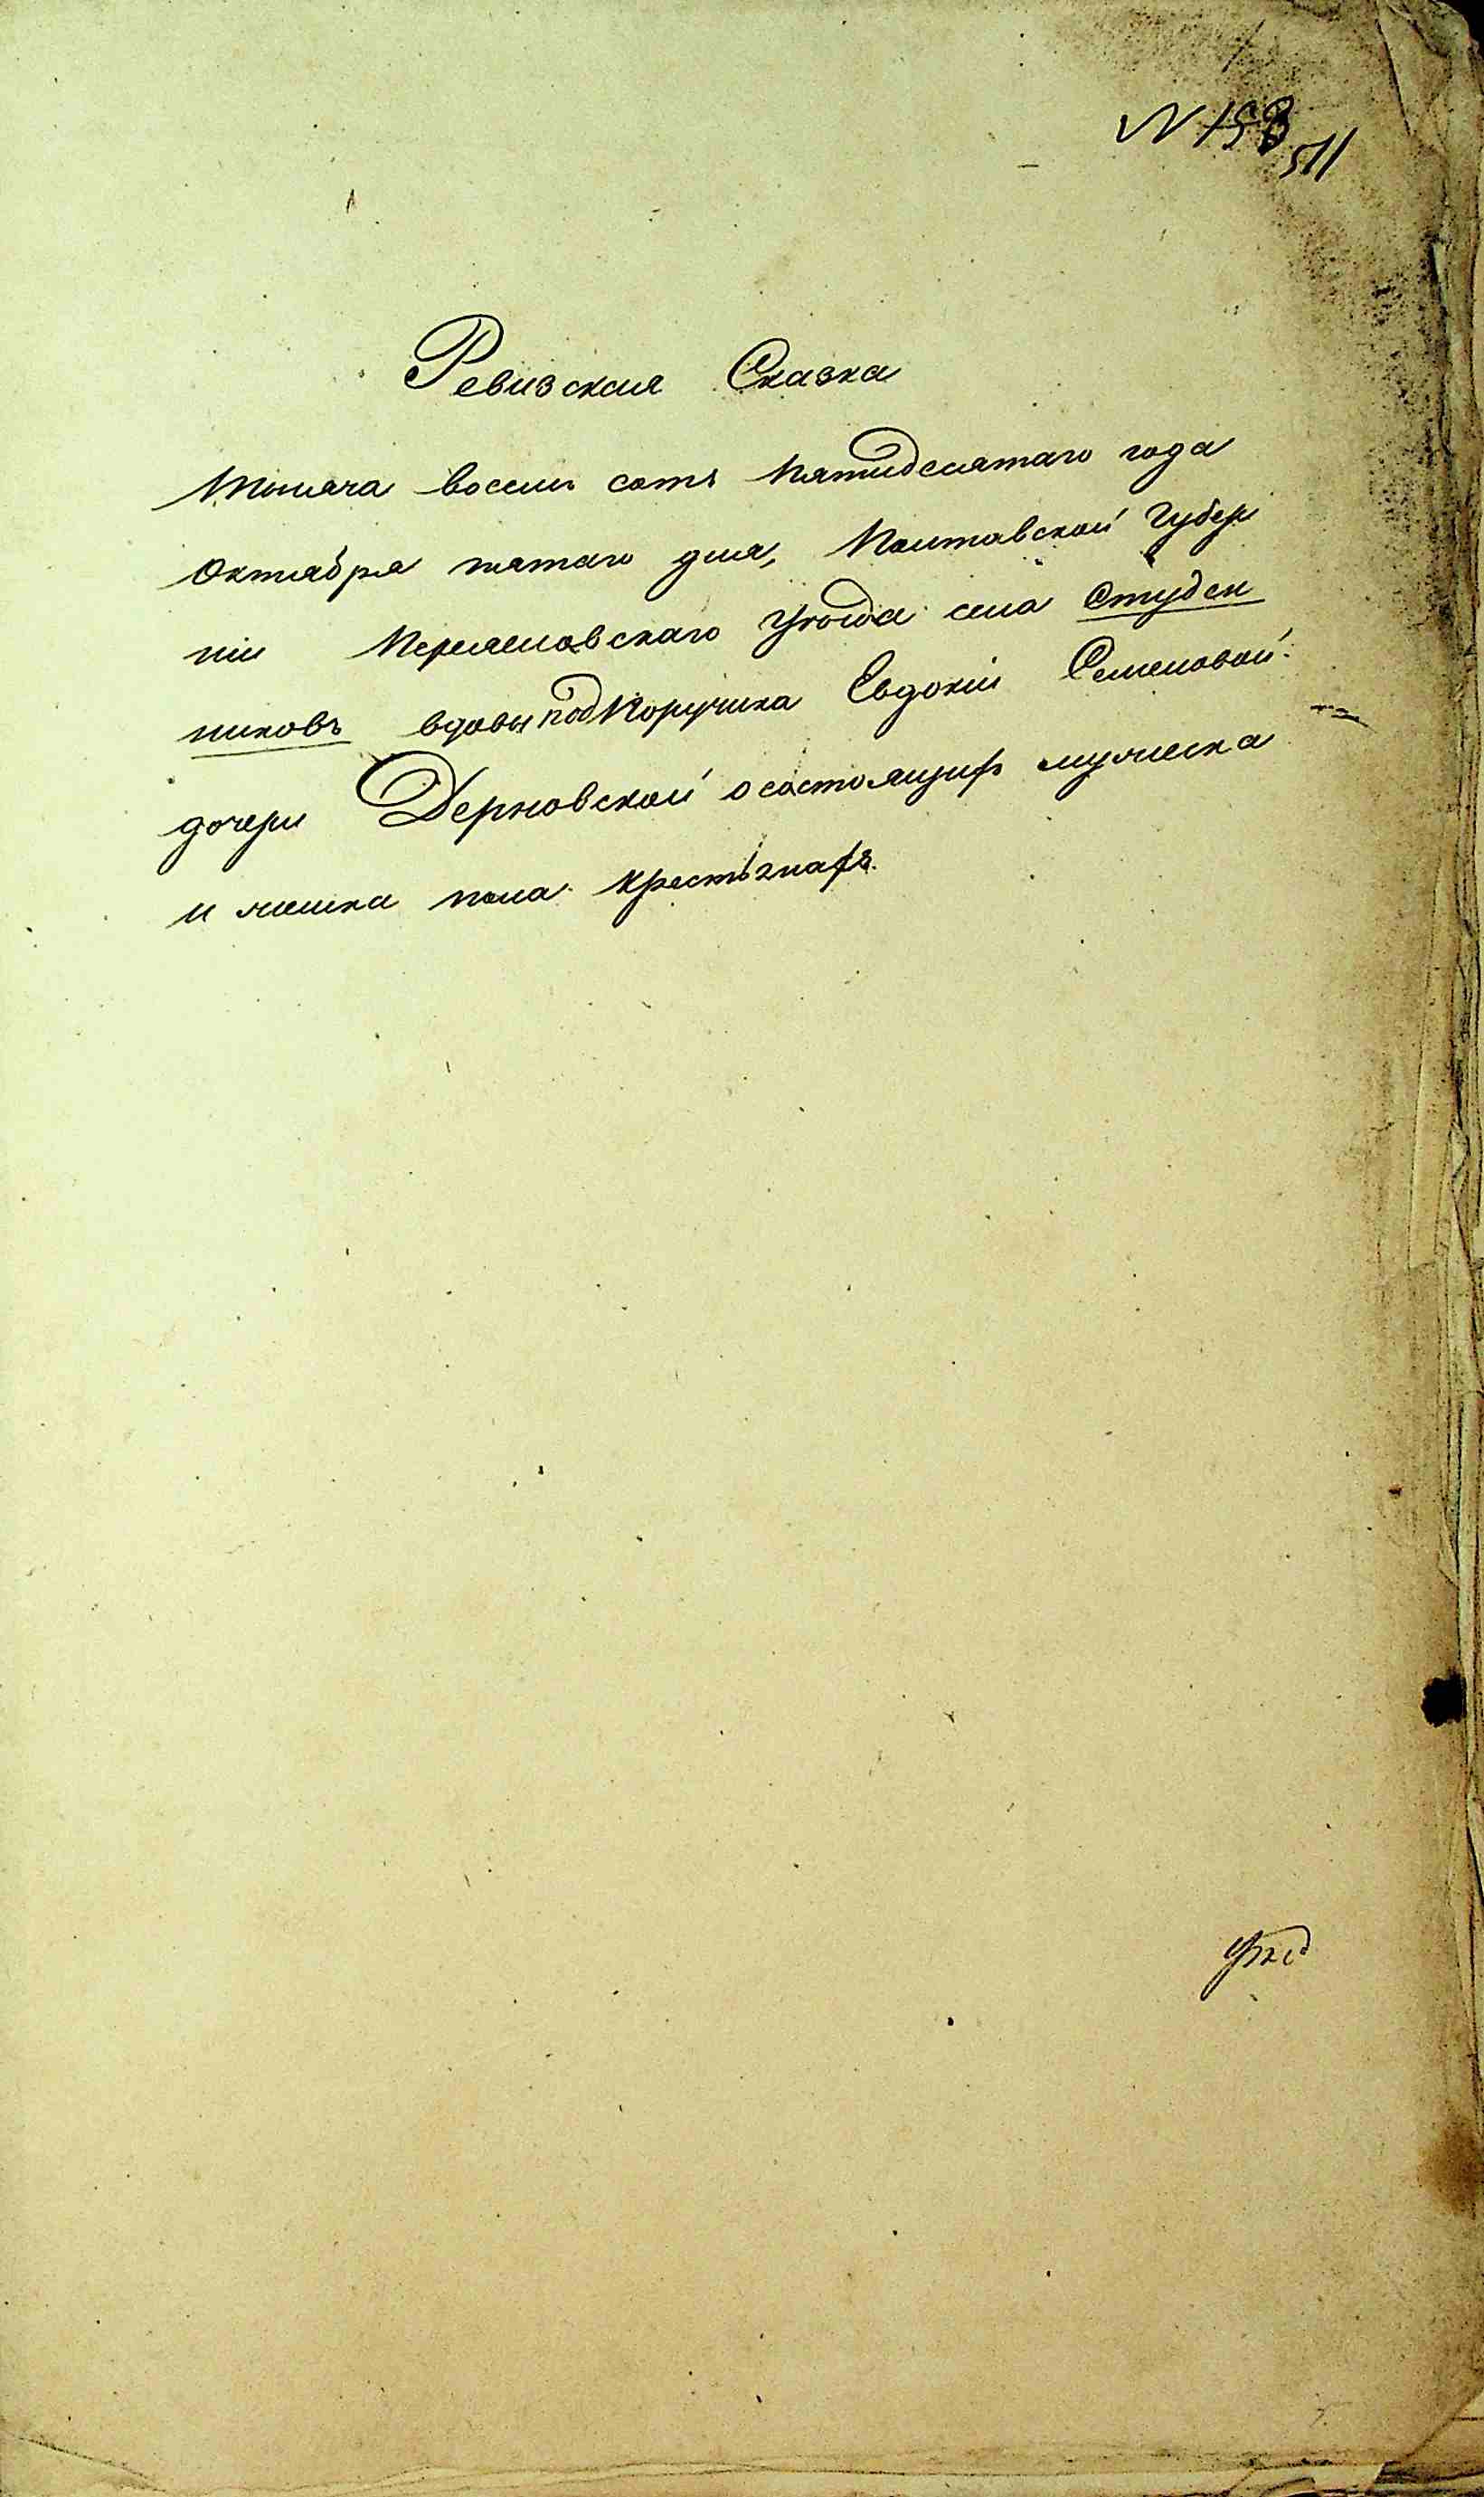 N 158
511
Ревизская Сказка
Тысяча восемь сотъ пятидесятаго года
Октября пятаго дня, Полтавской Губер
ніи Переяславскаго Уѣзда села Студен
никовъ вдовы подпоручика Евдокіи Семеновой
дочери Дерновской о состоящихъ мужеска
и женска пола крестьянахъ.